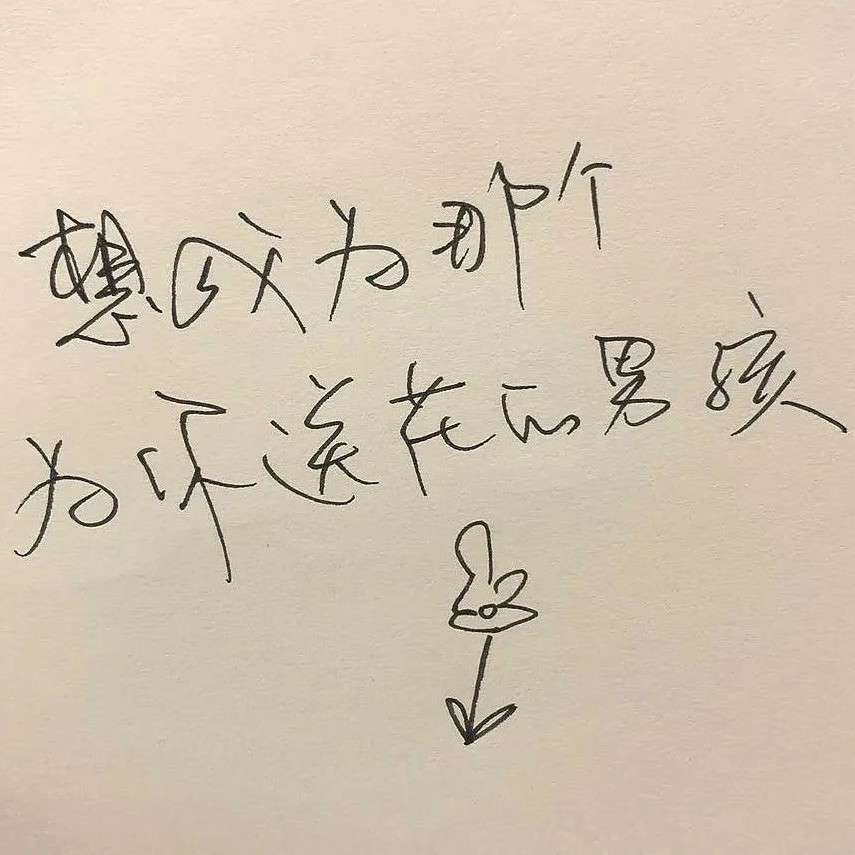 想成为那个
为你送花的男孩